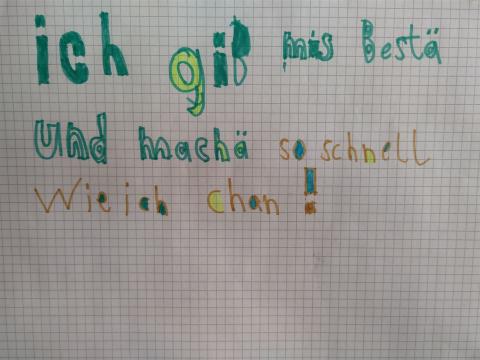 ich gib mis Bestä
und machä so schnell
Wie ich chan!